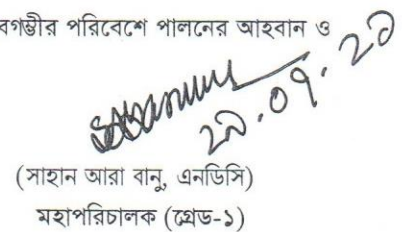 বগম্ভীর পরিবেশে পালনের আহবান ও
২৯.০৭.২১
(সাহান আরা বানু, এনডিসি)
মহাপরিচালক (গ্রেড-১)